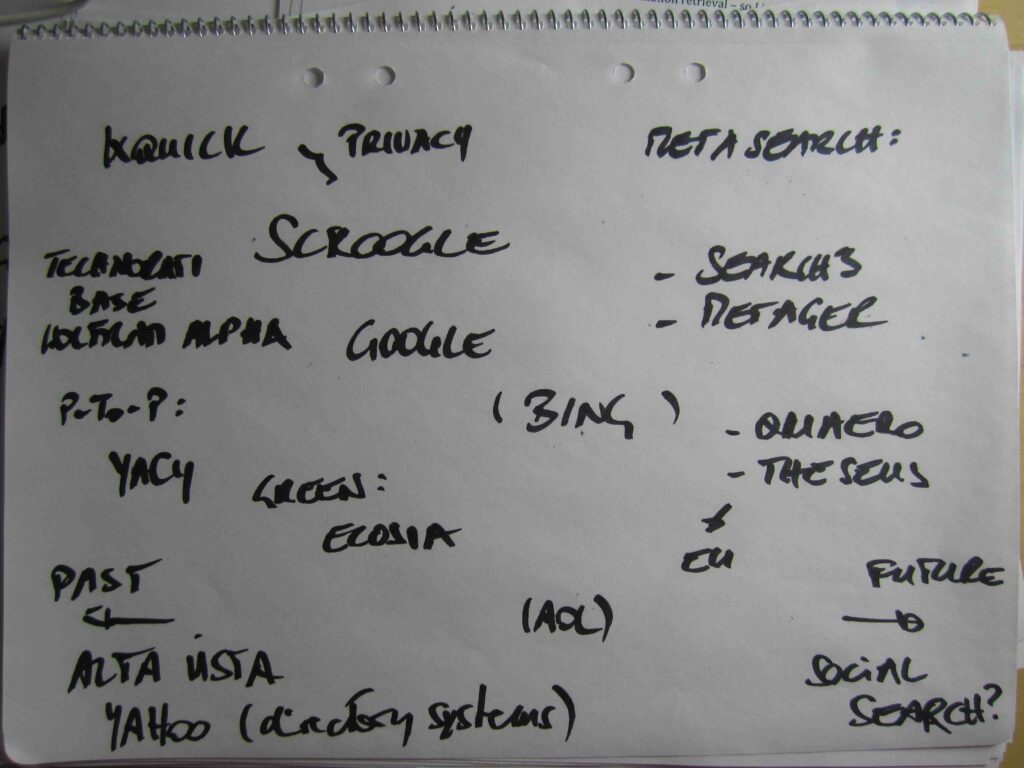 mation retrieval – so
IXQUICK PRIVACY
METASEARCH:
SCROOGLE
TECHNORATI
BASE
WOLFRAM ALPHA
GOOGLE
- SEARCH3
- METAGER
P-TO-P:
YACY
(BING)
- QUAERO
- THESEUS
EU
GREEN:
ECOSIA
PAST
(AOL)
FUTURE
ALTA VISTA
YAHOO (directory systems)
SOCIAL
SEARCH?